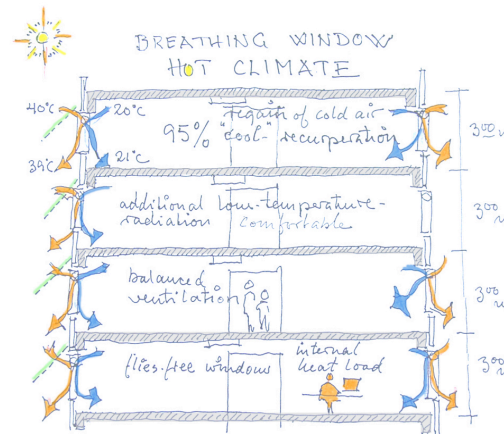 BREATHING WINDOW
HOT CLIMATE
40°C
20°C
39°C
21°C
regain of cold air
95% "cool"- recuperation
300
additional low-temperature-
radiation comfortable
300
balanced
ventilation
300
flies-free windows
internal
heat load
300